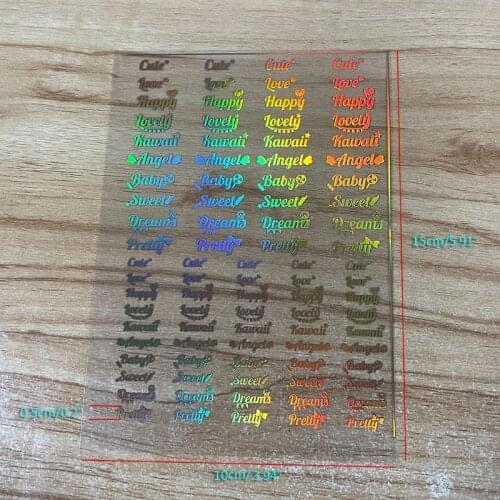 Cute Cute Cute Cute
Love Love Love Love
Happy Happy Happy Happy
Lovely Lovely Lovely Lovely
Kawaii Kawaii Kawaii Kawaii
Angel Angel Angel Angel
Baby Baby Baby Baby
Sweet Sweet Sweet Sweet
Dreams Dreams Dreams Dreams
Pretty Pretty Pretty Pretty
15cm/5.91"
Cute Cute Cute Cute Cute
Love Love Love Love Love
Happy Happy Happy Happy Happy
Lovely Lovely Lovely Lovely Lovely
Kawaii Kawaii Kawaii Kawaii Kawaii
Angel Angel Angel Angel Angel
Baby Baby Baby Baby Baby
Sweet Sweet Sweet Sweet Sweet
Dreams Dreams Dreams Dreams Dreams
0.5cm/0.2"
Pretty Pretty Pretty Pretty Pretty
10cm/3.94"